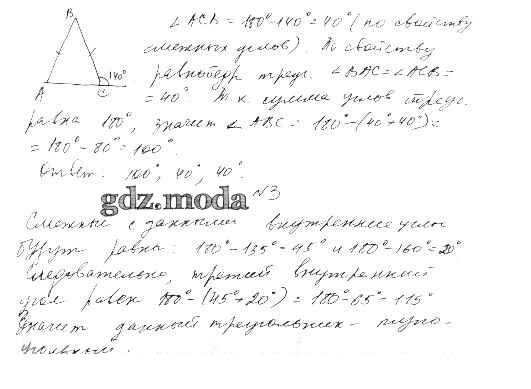 B
∠ACB = 180° - 140° = 40° (по свойству
смежных углов). По свойству
140°
равнобедр треуг. ∠BAC = ∠ACB =
A C
= 40°. Т.к сумма углов треуг.
равна 180°, значит ∠ABC = 180° - (40° + 40°) =
= 180° - 80° = 100°.
Ответ: 100°, 40°, 40°.
gdz.moda
№3
Смежные с данными внутренние углы
будут равны: 180° - 135° = 45° и 180° - 160° = 20°
Следовательно, третий внутренний
угол равен 180° - (45° + 20°) = 180° - 65° = 115°
Значит данный треугольник - тупо-
угольный.